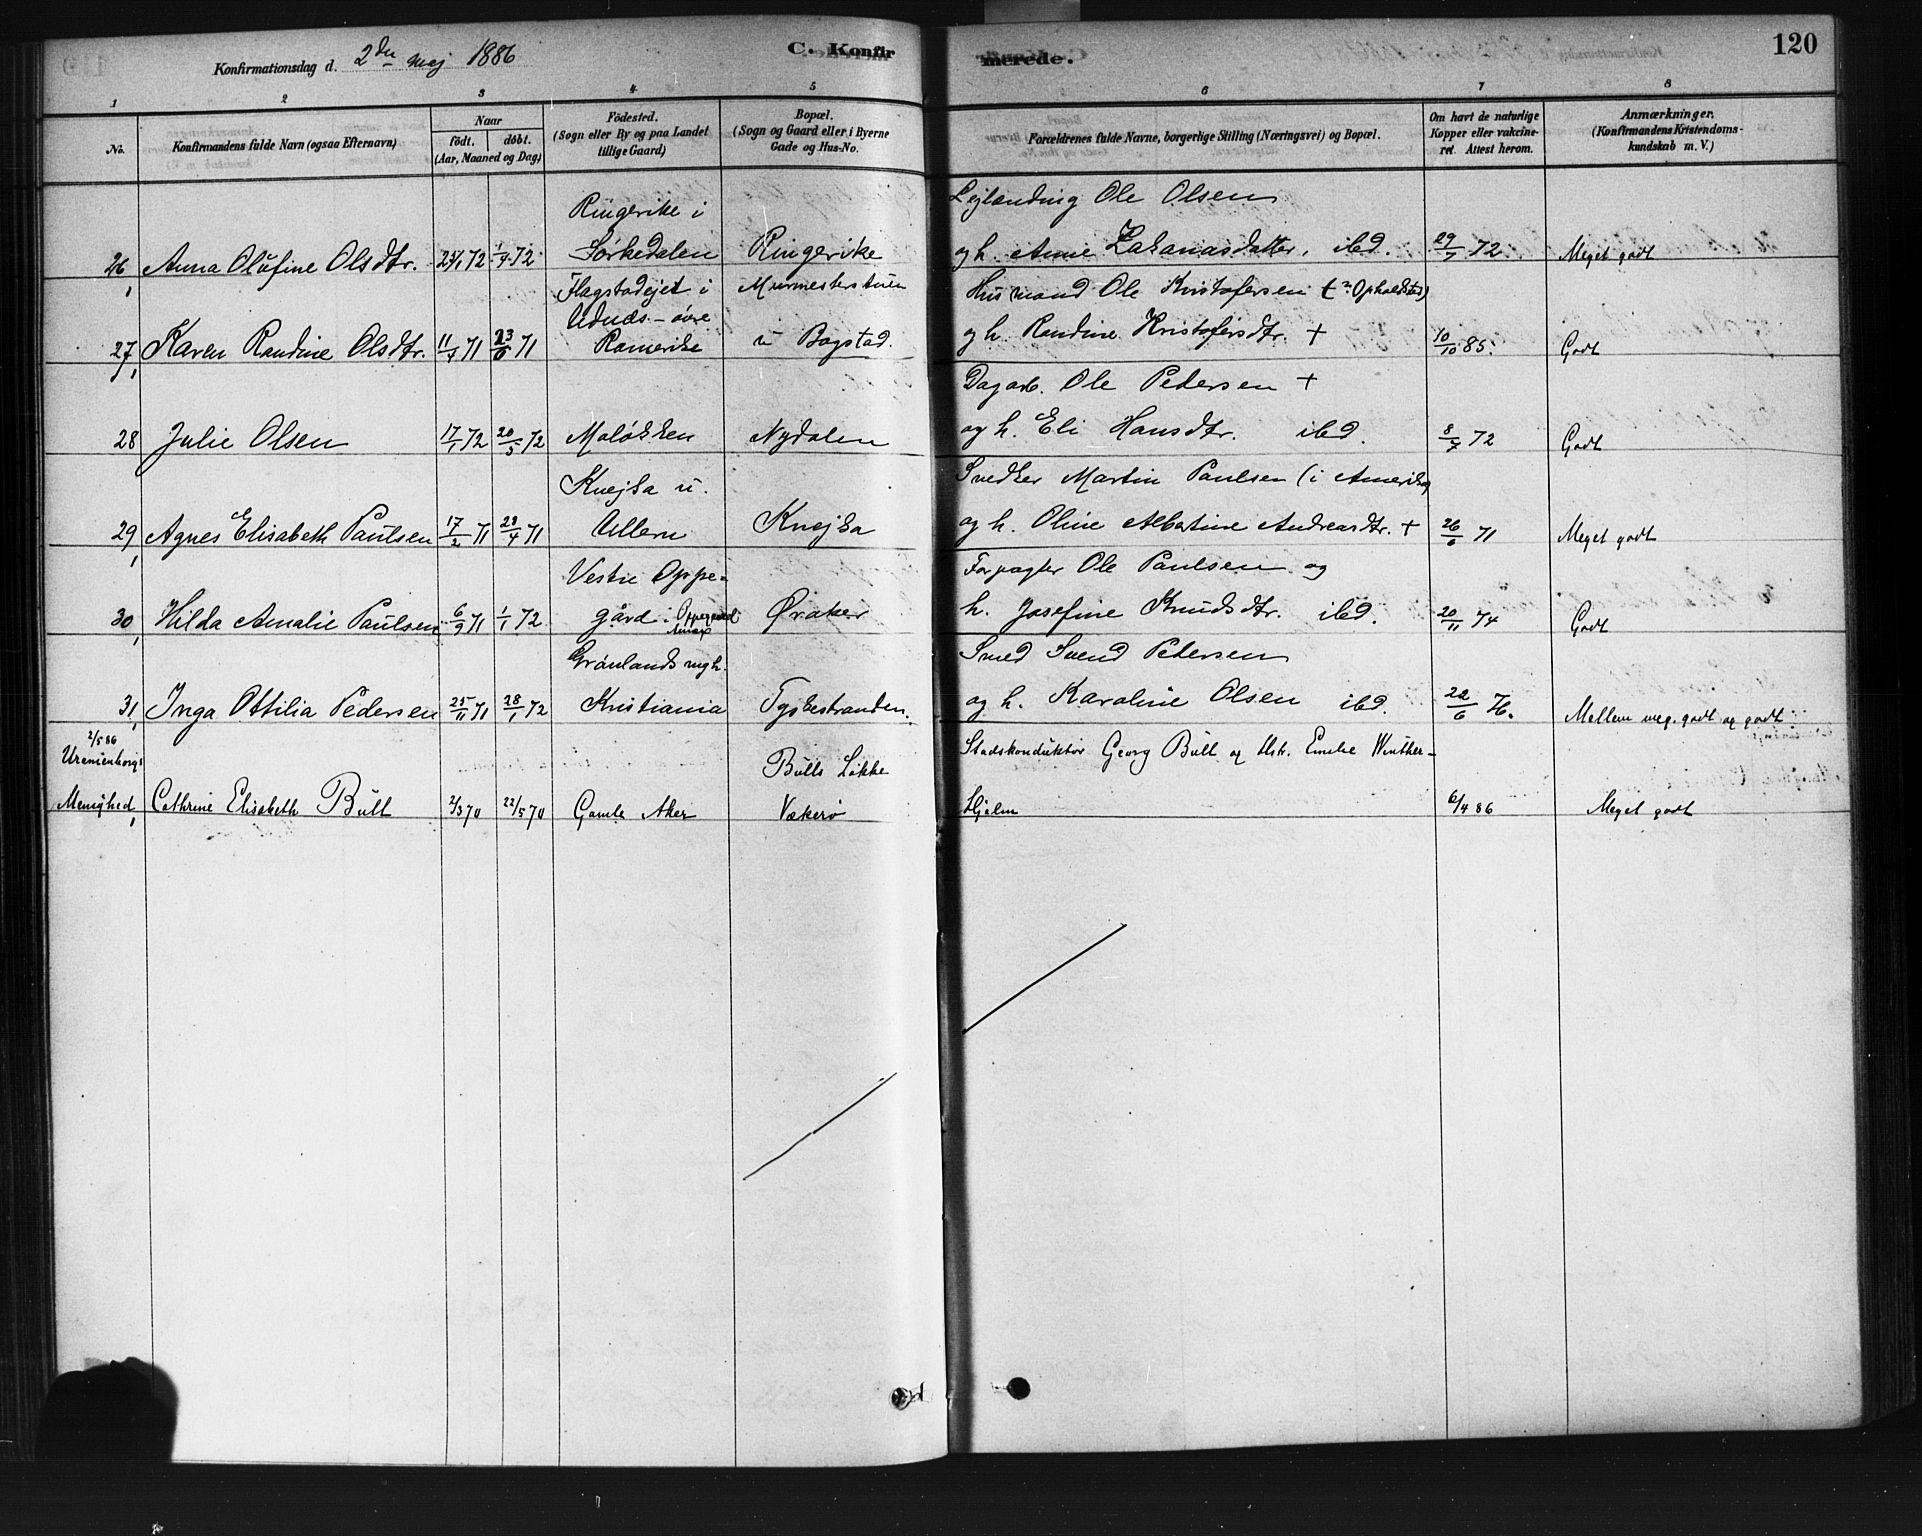 Konfirmationsdag d. 2den Maj 1886 C. Konfirmerede. 120
1 2 3 4 5 6 7 8
No. Konfirmandens fulde Navn (ogsaa Efternavn) Naar födt. döbt. (Aar, Maaned og Dag) Födested. (Sogn eller By og paa Landet tillige Gaard) Bopæl. (Sogn og Gaard eller i Byerne Gade og Hus-No. Forældrenes fulde Navne, borgerlige Stilling (Næringsvei) og Bopæl. Om havt de naturlige Kopper eller vakcineret. Attest herom. Anmærkninger. (Konfirmandens Kristendomskundskab m. V.)
Ringerike i Lejlænding Ole Olsen
26, Anna Olufine Olsdtr. 72 1/4 72 Sørkedalen Ringerike og h. Anne Zakariasdatter, ibd. 29/7 72 Meget godt
Flagstadejet i Murmesterstuen Husmand Ole Kristofersen (? Opholdsted)
Udnæs - øvre
27, Karen Randine Olsdtr. 11/4 71 23/6 71 Romerike u. Bogstad. og h. Randine Kristofersdtr. + 10/10 85. Godt
Dagarb. Ole Pedersen +
28 Julie Olsen 17/1 72 20/5 72 Moløkken Nydalen og h. Eli Hansdtr. ibd. 8/7 72 Godt
Knejka u. Snedker Martin Paulsen (i Amerika)
29, Agnes Elisabeth Paulsen 17/2 71 28/4 71 Ullern Knejka og h. Oline Albertine Andreasdtr. + 26/6 71 Meget godt
Vestre Oppe- Forpagter Ole Paulsen og
30, Hilda Amalie Paulsen 6/9 71 1/1 72 gård i Oppegaard Annex Øraker h. Josefine Knudsdtr. ibd. 20/11 74 Godt
Grønlands mgh. Smed Svend Petersen
31, Inga Ottilia Pedersen 25/11 71 28/1 72 Kristiania Tyskestranden. og h. Karoline Olsen ibd. 22/6 76. Mellem meg. godt og godt
2/5 86
Uranienborgs Bulls Løkke Stadskonduktør Georg Bull og Hst. Emilie Winther-
Menighed, Cathrine Elisabeth Bull 2/3 70 22/5 70 Gamle Aker Vækerø Hjelm 6/4 86 Meget godt